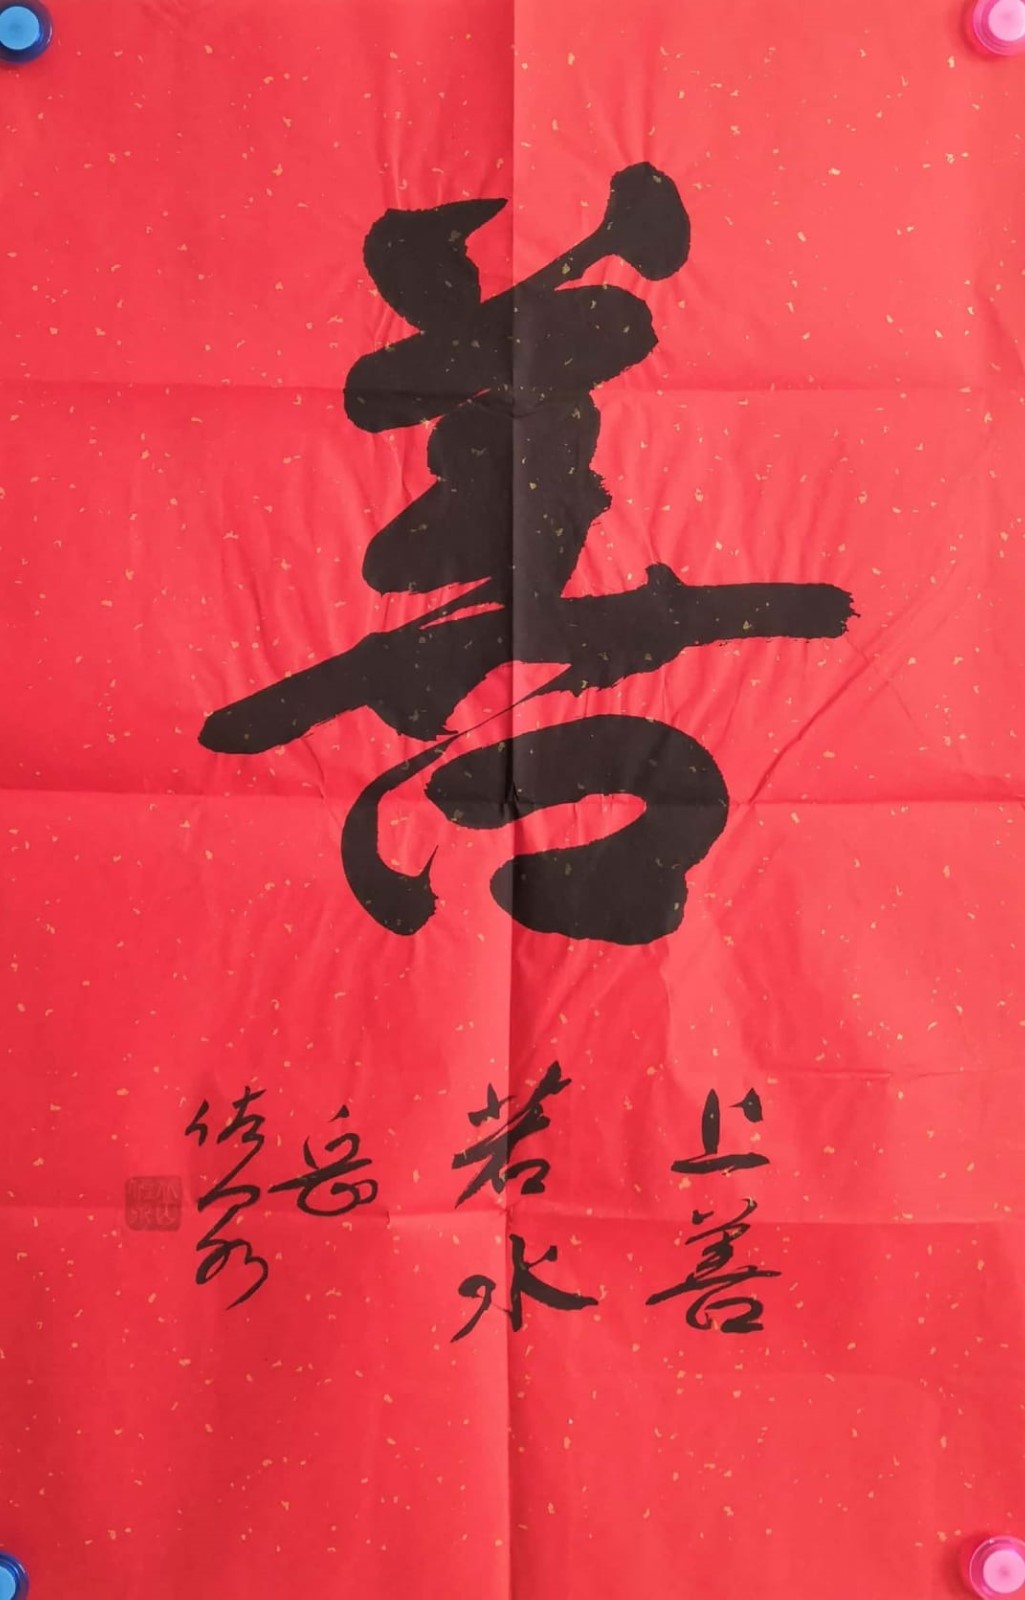 善
上善
若水
岳